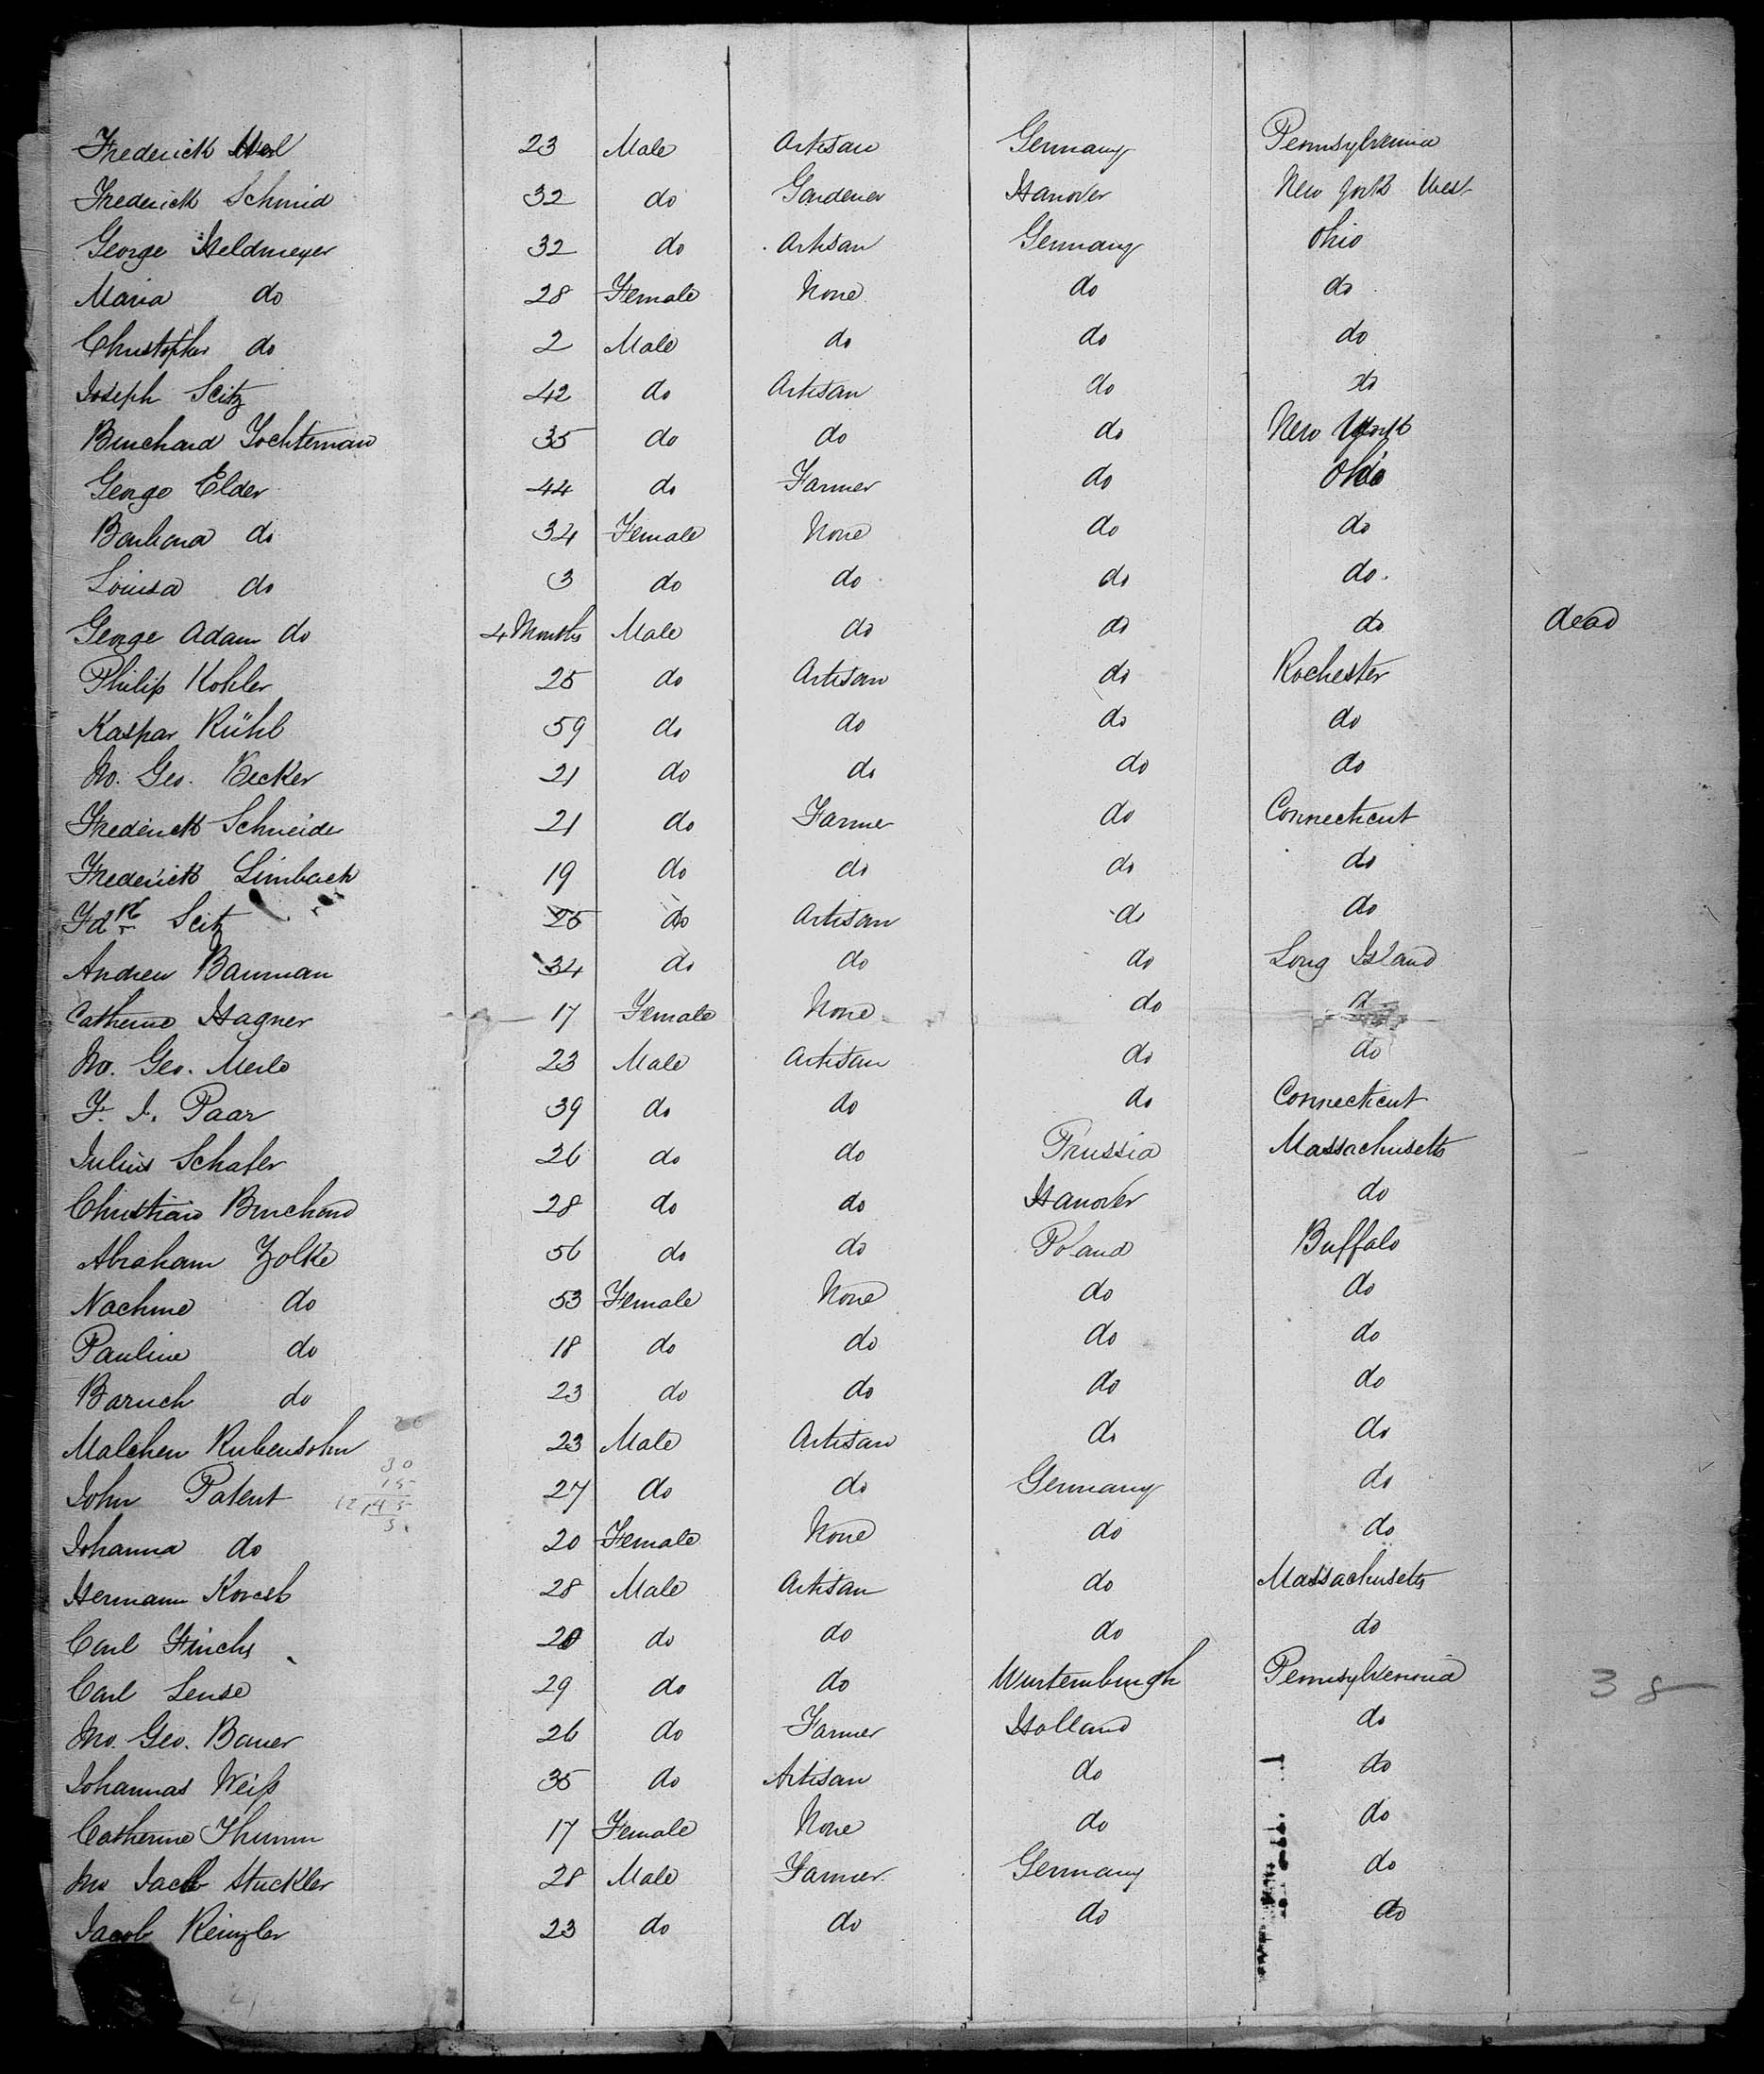 Frederick 23 Male Artisan Germany Pennsylvania
Frederick Schmid 32 do Gardener Hanover New York West
George Heldmeyer 32 do Artisan Germany Ohio
Maria do 28 Female None do do
Christopher do 2 Male do do do
Joseph Seitz 42 do Artisan do do
Burchard Tochterman 35 do do do New York
George Elder 44 do Farmer do Ohio
Barbara do 34 Female None do do
Louisa do 3 do do do do
George Adam do 4 Months Male do do do dead
Philip Kohler 25 do Artisan do Rochester
Kaspar Rühl 59 do do do do
Jno. Geo. Becker 21 do do do do
Frederick Schneider 21 do Farmer do Connecticut
Frederick Limbach 19 do do do do
Fdk Seitz 25 do Artisan do do
Andrew Bauman 34 do do do Long Island
Catherine Hagner 17 Female None do
Jno. Geo. Merlo 23 Male Artisan do do
F. J. Paar 39 do do do Connecticut
Julius Schafer 26 do do Prussia Massachusetts
Christian Burchard 28 do do Hanover do
Abraham Zolke 56 do do Poland Buffalo
Nachme do 53 Female None do do
Pauline do 18 do do do do
Baruch do 23 do do do do
Malchen Rubensohn 23 Male Artisan do do
John Patent 27 do do Germany do
Johanna do 20 Female None do do
Hermann 28 Male Artisan do Massachusetts
Carl 20 do do do do
Carl Lense 29 do do Wurtemburgh Pennsylvania 38
Jno. Geo. Bauer 26 do Farmer Holland do
Johannas Weiß 35 do Artisan do do
Catherine Thumm 17 Female None do do
Jno Jacob Stuckler 28 Male Farmer Germany do
Jacob Reinzler 23 do do do do